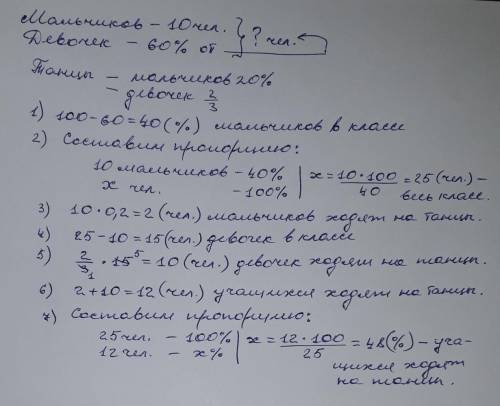 Мальчиков – 10 чел. } ? чел.
Девочек – 60% от
Танцы – мальчиков 20%
– девочек 2/3
1) 100-60=40(%) мальчиков в классе
2) Составим пропорцию:
10 мальчиков – 40% | x = 10·100/40 = 25 (чел.) –
x чел. – 100% | весь класс.
3) 10·0,2=2 (чел.) мальчиков ходят на танцы.
4) 25-10=15(чел.) девочек в классе
5) 2/3 1 · 15 5 = 10 (чел.) девочек ходят на танцы.
6) 2+10=12 (чел.) учащихся ходят на танцы.
7) Составим пропорцию:
25 чел. – 100% | x = 12·100/25 = 48(%) – уча-
12 чел. – x% | щихся ходят
на танцы.